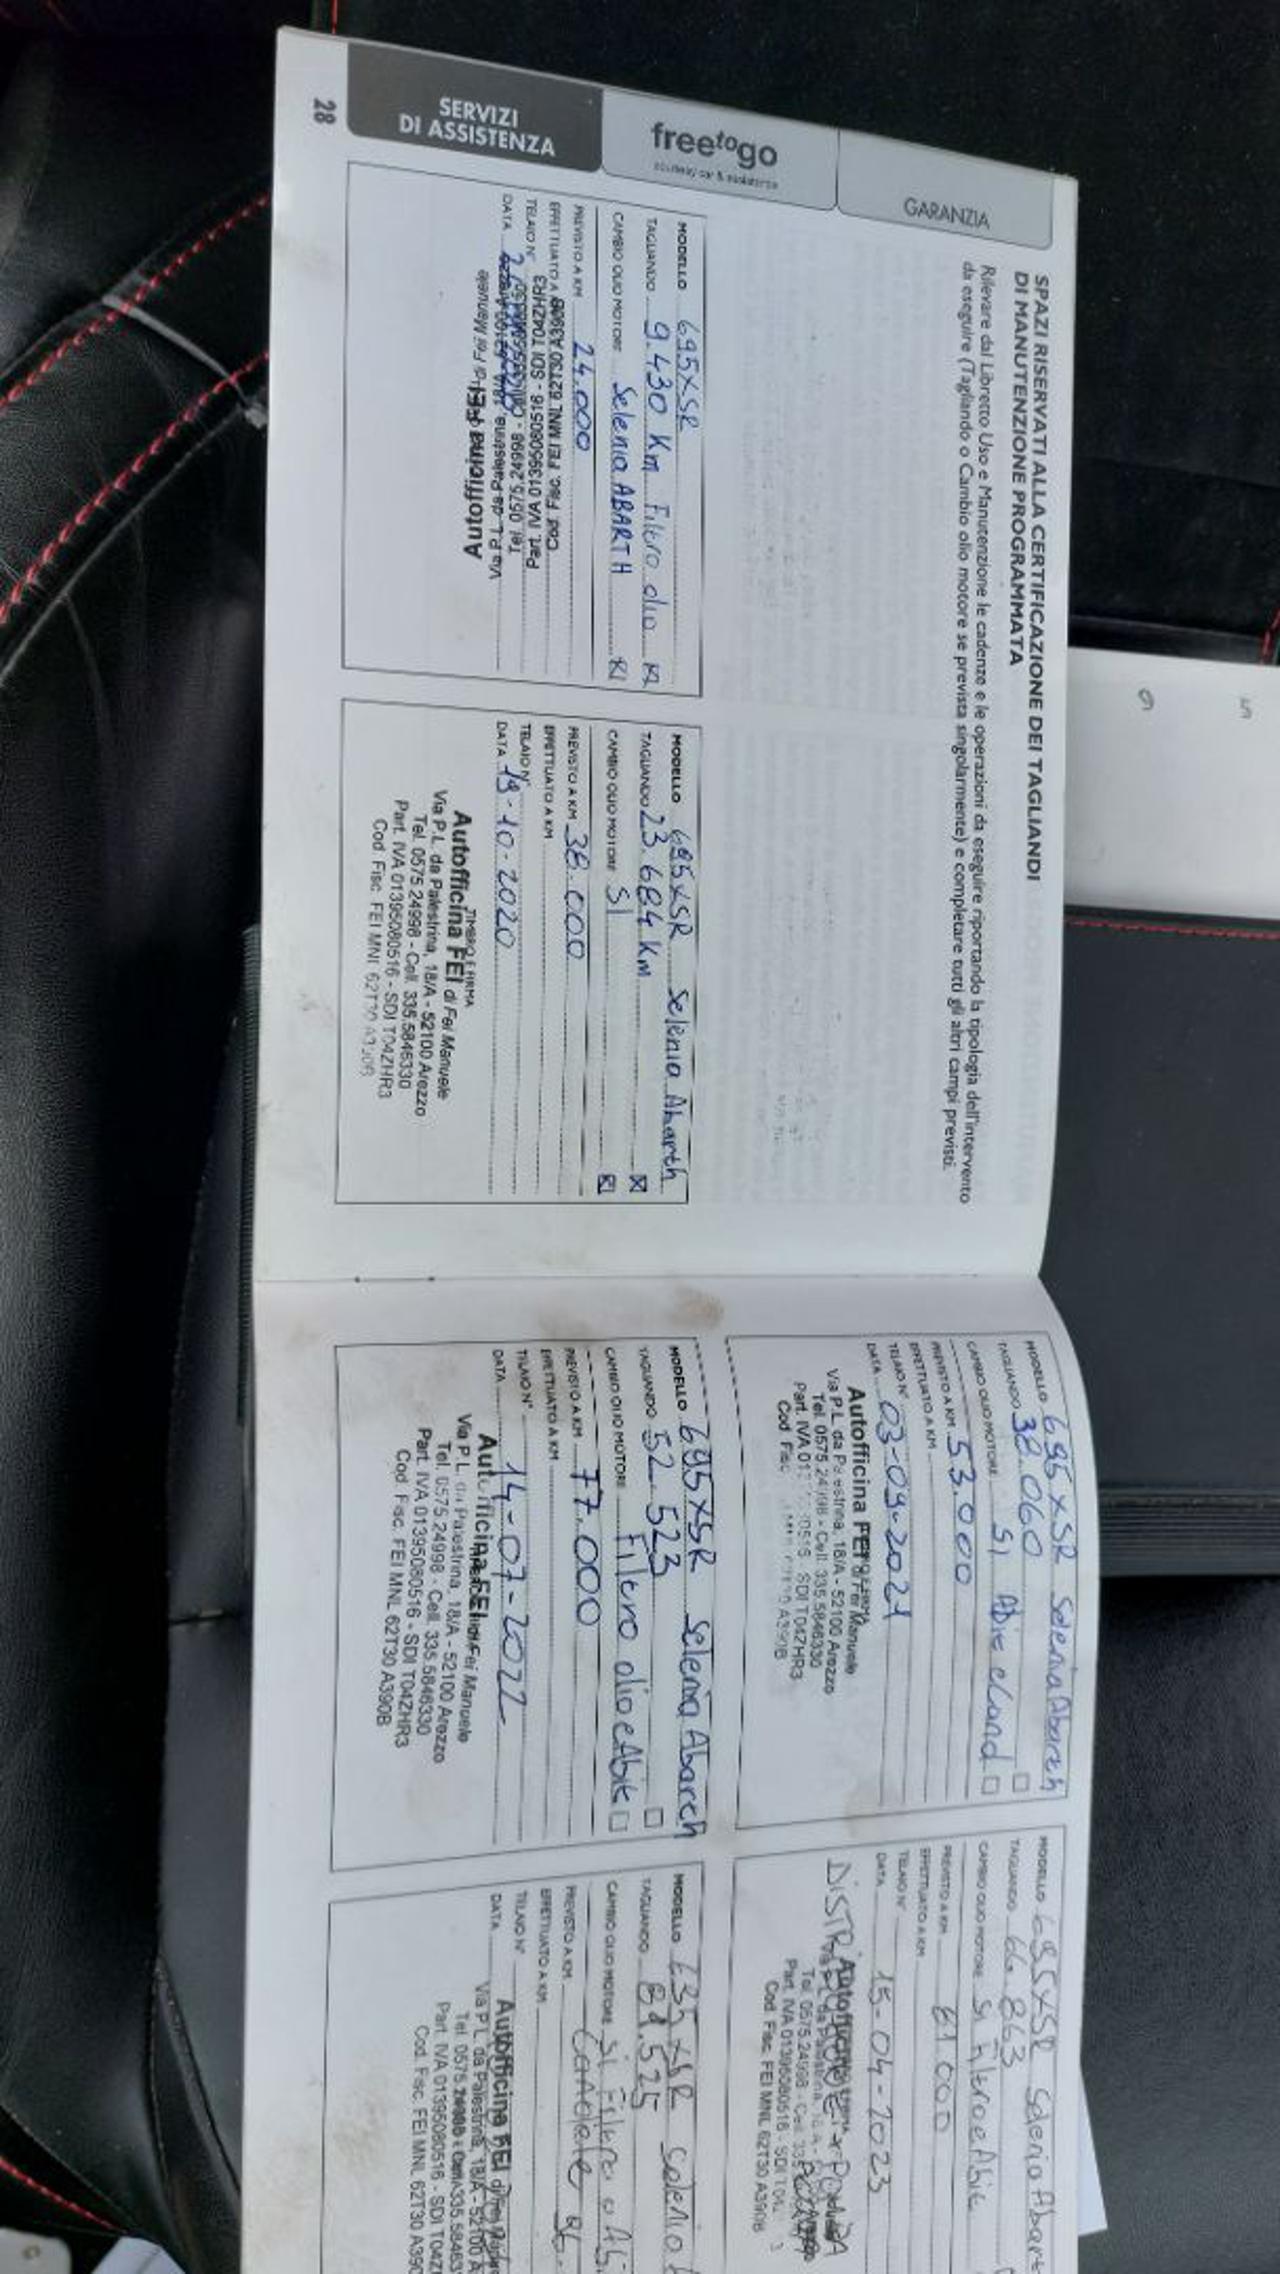 SERVIZI
DI ASSISTENZA
freetogo
GARANZIA
28
SPAZI RISERVATI ALLA CERTIFICAZIONE DEI TAGLIANDI
DI MANUTENZIONE PROGRAMMATA
Rilevare dal Libretto Uso e Manutenzione le cadenze e le operazioni da eseguire riportando la tipologia dell'intervento
da eseguire (Tagliando o Cambio olio motore se prevista singolarmente) e completare tutti gli altri campi previsti.
MODELLO 695XSR
TAGLIANDO 9.430 Km Filtro olio
CAMBIO OLIO MOTORE Selenia ABARTH
PREVISTO A KM 24.000
EFFETTUATO A KM
TELAIO N°
DATA
Autofficina FEI di Fei Manuele
Via P.L. da Palestrina, 18/A - 52100 Arezzo
Tel. 0575.24998 - Cell. 335.5846330
Part. IVA 01395080516 - SDI T04ZHR3
Cod. Fisc. FEI MNL 62T30 A390B
MODELLO 695XSR Selenia Abarth
TAGLIANDO 23.684 Km
CAMBIO OLIO MOTORE SI
PREVISTO A KM 38.000
EFFETTUATO A KM
TELAIO N°
DATA 19-10-2020
TIMBRO E FIRMA
Autofficina FEI di Fei Manuele
Via P.L. da Palestrina, 18/A - 52100 Arezzo
Tel. 0575.24998 - Cell. 335.5846330
Part. IVA 01395080516 - SDI T04ZHR3
Cod. Fisc. FEI MNL 62T30 A390B
MODELLO 695XSR Selenia Abarth
TAGLIANDO 38.060
CAMBIO OLIO MOTORE SI Abit e Cand
PREVISTO A KM 53.000
EFFETTUATO A KM
TELAIO N°
DATA 03-09-2021
Autofficina FEI di Fei Manuele
Via P.L. da Palestrina, 18/A - 52100 Arezzo
Tel. 0575.24998 - Cell. 335.5846330
Part. IVA 01395080516 - SDI T04ZHR3
Cod. Fisc.
MODELLO 695XSR Selenia Abarth
TAGLIANDO 66.863
CAMBIO OLIO MOTORE SI Filtro e Abit
PREVISTO A KM 81.000
EFFETTUATO A KM
TELAIO N°
DATA 15-04-2023
Via P.L. da Palestrina, 18/A
Tel. 0575.24998 - Cell. 335
Part. IVA 01395080516 - SDI T04Z
Cod. Fisc. FEI MNL 62T30 A390B
MODELLO 695XSR Selenia Abarth
TAGLIANDO 52.523
CAMBIO OLIO MOTORE Filtro olio e Abit
PREVISTO A KM 77.000
EFFETTUATO A KM
TELAIO N°
DATA 14-07-2022
Autofficina FEI di Fei Manuele
Via P.L. da Palestrina, 18/A - 52100 Arezzo
Tel. 0575.24998 - Cell. 335.5846330
Part. IVA 01395080516 - SDI T04ZHR3
Cod. Fisc. FEI MNL 62T30 A390B
MODELLO 695XSR Selenia
TAGLIANDO 81.525
CAMBIO OLIO MOTORE SI Filtro
PREVISTO A KM
EFFETTUATO A KM
TELAIO N°
DATA
Autofficina FEI
Via P.L. da Palestrina, 18/A - 52100 A
Tel. 0575.24998 - Cell. 335.58463
Part. IVA 01395080516 - SDI T04Z
Cod. Fisc. FEI MNL 62T30 A390